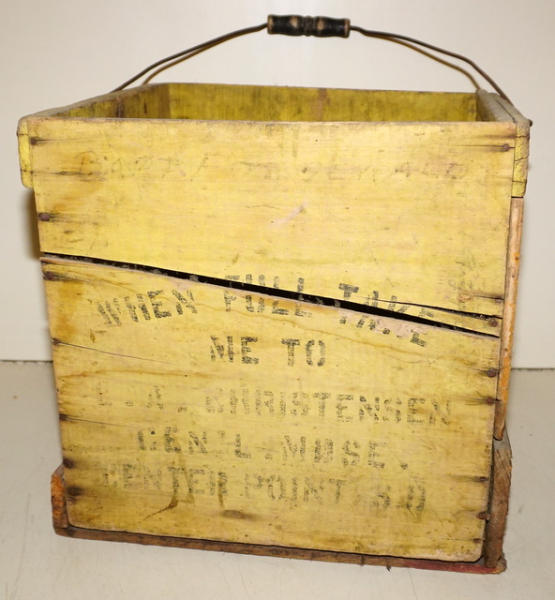 WHEN FULL TAKE
ME TO
CHRISTENSEN
GEN'L. MDSE.
CENTER POINT, S.D